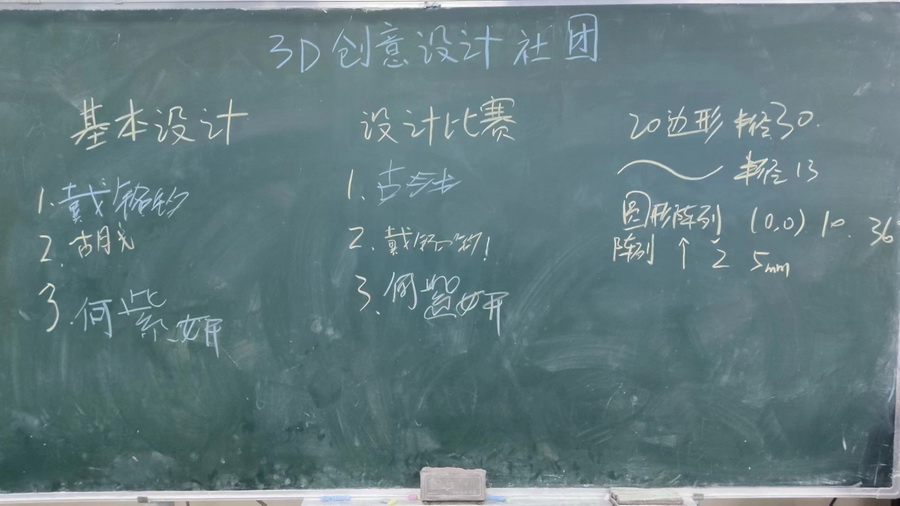 3D创意设计社团
基本设计
1.戴
2.胡
3.何紫妍
设计比赛
1.古
2.戴
3.何妍
20边形 半径30.
半径13
圆形阵列 (0,0) 10. 36
阵列 ↑ 5mm